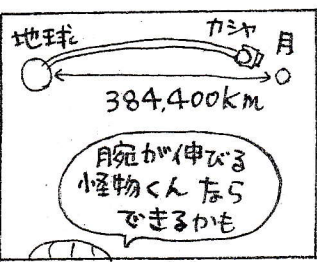 地球
カシャ
月
384,400km
腕が伸びる
怪物くんなら
できるかも